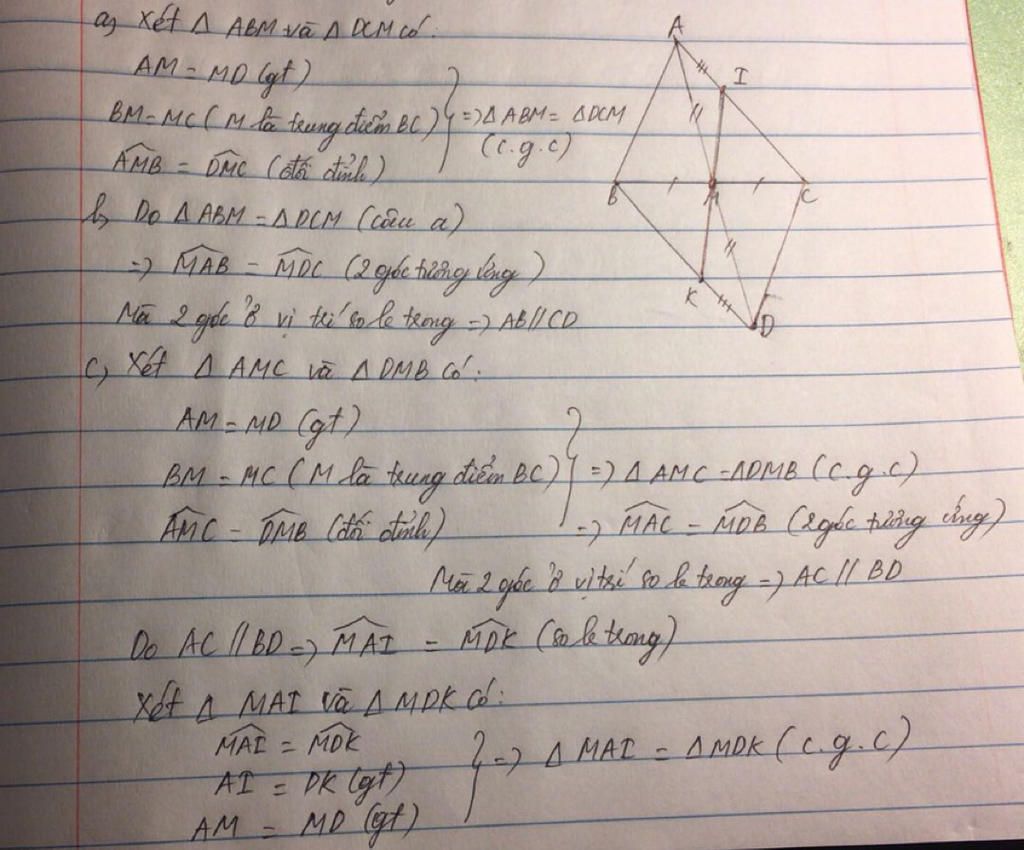 a) Xét Δ ABM và Δ DCM có:
AM = MD (gt)
BM = MC (M là trung điểm BC)
=> Δ ABM = ΔDCM
(c.g.c)
\widehat{AMB} = \widehat{DMC} (đối đỉnh)
b) Do Δ ABM = Δ DCM (câu a)
=> \widehat{MAB} = \widehat{MDC} (2 góc tương ứng)
Mà 2 góc ở vị trí so le trong => AB // CD
c) Xét Δ AMC và Δ DMB có:
AM = MD (gt)
BM = MC (M là trung điểm BC)
=> Δ AMC = ΔDMB (c.g.c)
\widehat{AMC} = \widehat{DMB} (đối đỉnh)
=> \widehat{MAC} = \widehat{MDB} (2 góc tương ứng)
Mà 2 góc ở vị trí so le trong => AC // BD
Do AC // BD => \widehat{MAI} = \widehat{MDK} (so le trong)
Xét Δ MAI và Δ MDK có:
\widehat{MAI} = \widehat{MDK}
AI = DK (gt)
AM = MD (gt)
=> Δ MAI = Δ MDK (c.g.c)
A
I
B
M
C
K
D